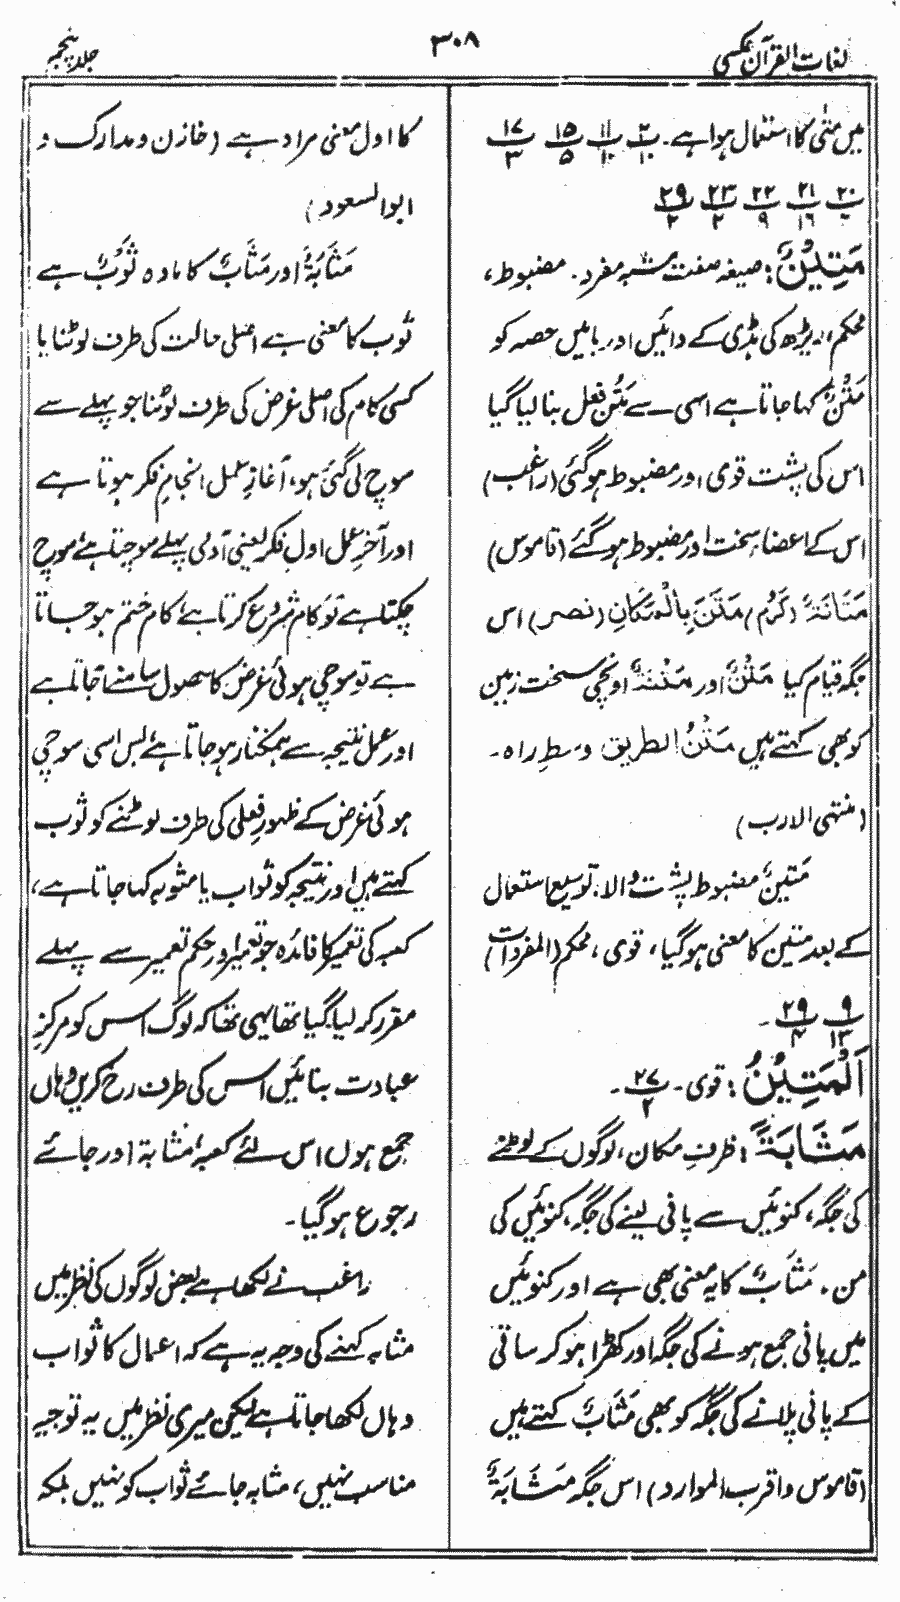 لغات القرآن عکسی
۳۰۸
جلد پنجم
میں متٰی کا استعمال ہوا ہے۔ ۲/۱۰ ۱۱/۱۰ ۱۵/۵ ۱۷/۳
۲۰ ۲۱/۱۶ ۲۲/۹ ۲۳/۲ ۲۹/۲
مَتِیْنٌ: صیغہ صفت مشبہ مفرد۔ مضبوط،
محکم، ریڑھ کی ہڈی کے دائیں اور بائیں حصہ کو
مَتْنٌ کہا جاتا ہے اسی سے مَتُنَ فعل بنا لیا گیا
اس کی پشت قوی اور مضبوط ہو گئی (راغب)
اس کے اعضا سخت اور مضبوط ہو گئے (قاموس)
مَتَانَۃً (کَرُمَ) مَتَنَ بِالْمَکَانِ (نصر) اس
جگہ قیام کیا مَتْنٌ اور مَتْنَۃٌ اونچی سخت زمین
کو بھی کہتے ہیں مَتْنُ الطریق وسطِ راہ۔
(منتہی الارب)
مَتِیْنٌ مضبوط پشت والا۔ توسیع استعمال
کے بعد متین کا معنی ہو گیا، قوی، محکم (المفردات)
۹/۱۳ ۲۹/۴ ۔
اَلْمَتِیْنُ: قوی۔ ۲۷/۲ ۔
مَثَابَۃً: ظرفِ مکان، لوگوں کے لوٹنے
کی جگہ، کنوئیں سے پانی لینے کی جگہ، کنوئیں کی
من۔ مَثَابٌ کا یہ معنی بھی ہے اور کنوئیں
میں پانی جمع ہونے کی جگہ اور کھڑا ہو کر ساقی
کے پانی پلانے کی جگہ کو بھی مَثَابٌ کہتے ہیں
(قاموس و اقرب الموارد) اس جگہ مَثَابَۃً
کا اول معنی مراد ہے (خازن و مدارک و
ابوالسعود)
مَثَابَۃً اور مَثَابٌ کا مادہ ثَوْبٌ ہے
ثوب کا معنی ہے اصلی حالت کی طرف لوٹنا یا
کسی کام کی اصلی غرض کی طرف لوٹنا جو پہلے سے
سوچ لی گئی ہو، آغازِ عمل انجامِ فکر ہوتا ہے
اور آخرِ عمل اول فکر یعنی آدمی پہلے سوچتا ہے، سوچ
چکتا ہے تو کام شروع کرتا ہے، کام ختم ہو جاتا
ہے تو سوچی ہوئی غرض کا حصول سامنے آجاتا ہے
اور عمل نتیجہ سے ہمکنار ہو جاتا ہے، بس اسی سوچی
ہوئی غرض کے ظہورِ فعلی کی طرف لوٹنے کو ثوب
کہتے ہیں اور نتیجہ کو ثواب یا مثوبہ کہا جاتا ہے،
کعبہ کی تعمیر کا فائدہ جو تعمیر اور حکم تعمیر سے پہلے
مقرر کر لیا گیا تھا یہی تھا کہ لوگ اس کو مرکزِ
عبادت بنائیں اس کی طرف رخ کریں وہاں
جمع ہوں اس لئے کعبہ، مثابۃ اور جائے
رجوع ہو گیا۔
راغب نے لکھا ہے بعض لوگوں کی نظر میں
مثابہ کہنے کی وجہ یہ ہے کہ اعمال کا ثواب
وہاں لکھا جاتا ہے لیکن میری نظر میں یہ توجیہ
مناسب نہیں، مثابہ جائے ثواب کو نہیں بلکہ